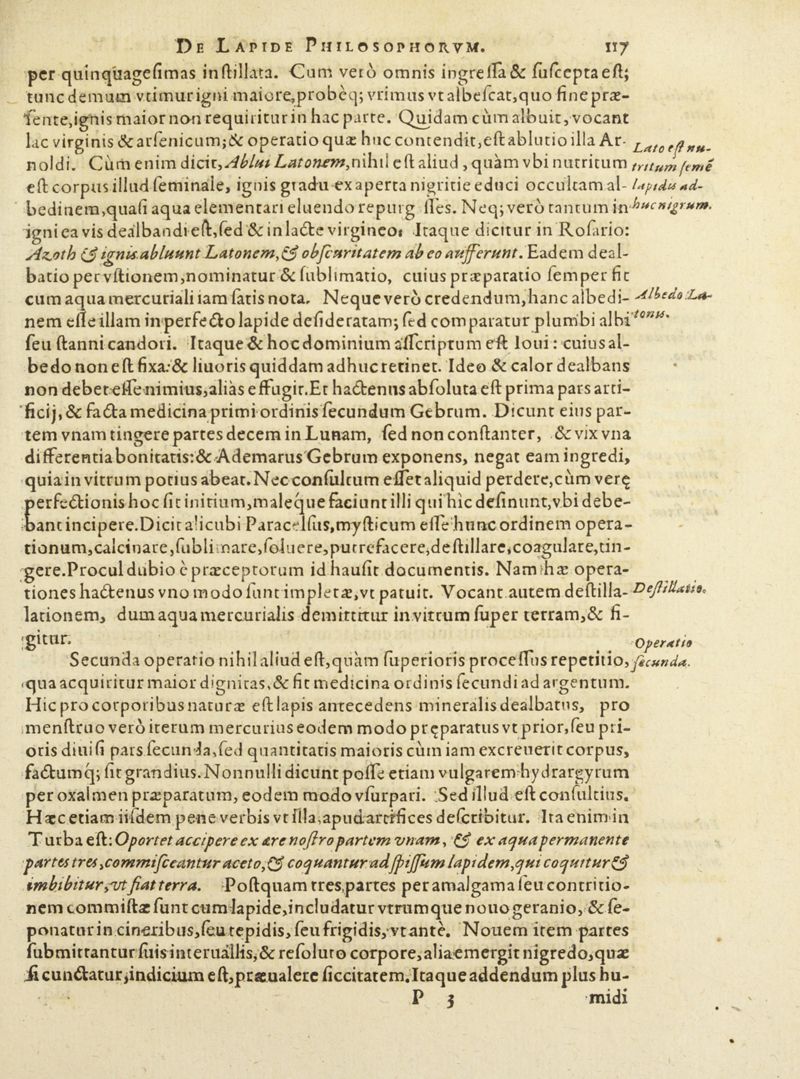 De Lapide Philosophorvm. 117
per quinquagesimas instillata. Cum verò omnis ingressa & suscepta est;
tunc demum vtimur igni maiore, probéq; vrimus vt albescat, quo sine præ-
sente, ignis maior non requiritur in hac parte. Quidam cùm albuit, vocant
lac virginis & arsenicum; & operatio quæ huc contendit, est ablutio illa Ar-
noldi. Cùm enim dicit, Ablui Latonem, nihil est aliud, quàm vbi nutritum
est corpus illud seminale, ignis gradu ex aperta nigritie educi occultam al-
bedinem, quasi aqua elementari eluendo repurgasses. Neq; verò tantum in
igni ea vis dealbandi est, sed & in lacte virgineo: Itaque dicitur in Rosario:
Azoth & ignis abluunt Latonem, & obscuritatem ab eo aufferunt. Eadem deal-
batio per vstionem, nominatur & sublimatio, cuius præparatio semper fit
cum aqua mercuriali iam satis nota. Neque verò credendum, hanc albedi-
nem esse illam in perfecto lapide desideratam; sed comparatur plumbi albi
seu stanni candori. Itaque & hoc dominium asscriptum est Ioui: cuius al-
bedo non est fixa: & liuoris quiddam adhuc retinet. Ideo & calor dealbans
non debet esse nimius, aliàs effugit. Et hactenus absoluta est prima pars arti-
ficij, & facta medicina primi ordinis secundum Gebrum. Dicunt eius par-
tem vnam tingere partes decem in Lunam, sed non constanter, & vix vna
differentia bonitatis: & Ademarus Gebrum exponens, negat eam ingredi,
quia in vitrum potius abeat. Nec consultum esset aliquid perdere, cùm verę
perfectionis hoc sit initium, maleque faciunt illi qui hîc desinunt, vbi debe-
bant incipere. Dicit alicubi Paracelsus, mysticum esse hunc ordinem opera-
tionum, calcinare, sublimare, soluere, putrefacere, destillare, coagulare, tin-
gere. Procul dubio è præceptorum id hausit documentis. Nam hæ opera-
tiones hactenus vno modo sunt impletæ, vt patuit. Vocant autem destilla-
lationem, dum aqua mercurialis demittitur in vitrum super terram, & fi-
gitur.
Secunda operatio nihil aliud est, quàm superioris processus repetitio,
qua acquiritur maior dignitas, & fit medicina ordinis secundi ad argentum.
Hic pro corporibus naturæ est lapis antecedens mineralis dealbatus, pro
menstruo verò iterum mercurius eodem modo pręparatus vt prior, seu pri-
oris diuisi pars secunda, sed quantitatis maioris cùm iam excreuerit corpus,
factumq; sit grandius. Nonnulli dicunt posse etiam vulgarem hydrargyrum
per oxalmen præparatum, eodem modo vsurpari. Sed illud est consultius.
Hæc etiam iisdem pene verbis vt illa, apud artifices describitur. Ita enim in
Turba est: Oportet accipere ex ære nostro partem vnam, & ex aqua permanente
partes tres, commisceantur aceto, & coquantur ad spissum lapidem, qui coquitur &
imbibitur, vt fiat terra. Postquam tres partes per amalgama seu contritio-
nem commistæ sunt cum lapide, includatur vtrumque nouo geranio, & se-
ponatur in cineribus, seu tepidis, seu frigidis, vt antè. Nouem item partes
submittantur suis interuallis, & resoluto corpore, alia emergit nigredo, quæ
si cunctatur, indicium est, præualere siccitatem. Itaque addendum plus hu-
P 3 midi
Lato est nu-
tritum seme
lapidis ad-
huc nigrum.
Albedo La-
tonis.
Destillatio.
Operatio
secunda.